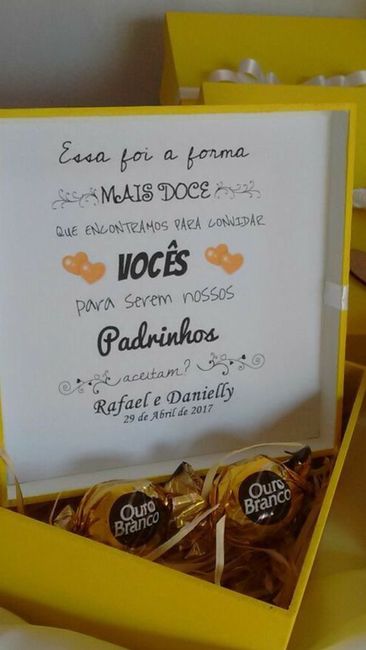 Essa foi a forma
MAIS DOCE
QUE ENCONTRAMOS PARA CONVIDAR
VOCÊS
para serem nossos
Padrinhos
aceitam?
Rafael e Danielly
29 de Abril de 2017
Ouro
Branco
Ouro
Branco